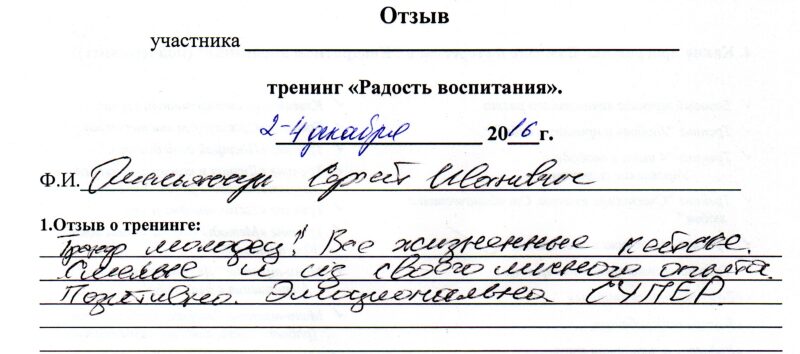 Отзыв
участника
тренинг «Радость воспитания».
2-4 декабря 2016 г.
Ф.И. Сергей Иванович
1.Отзыв о тренинге:
Тренер молодец! Все жизненные кейсы.
Смелые и из своего личного опыта.
Позитивно. Эмоционально СУПЕР